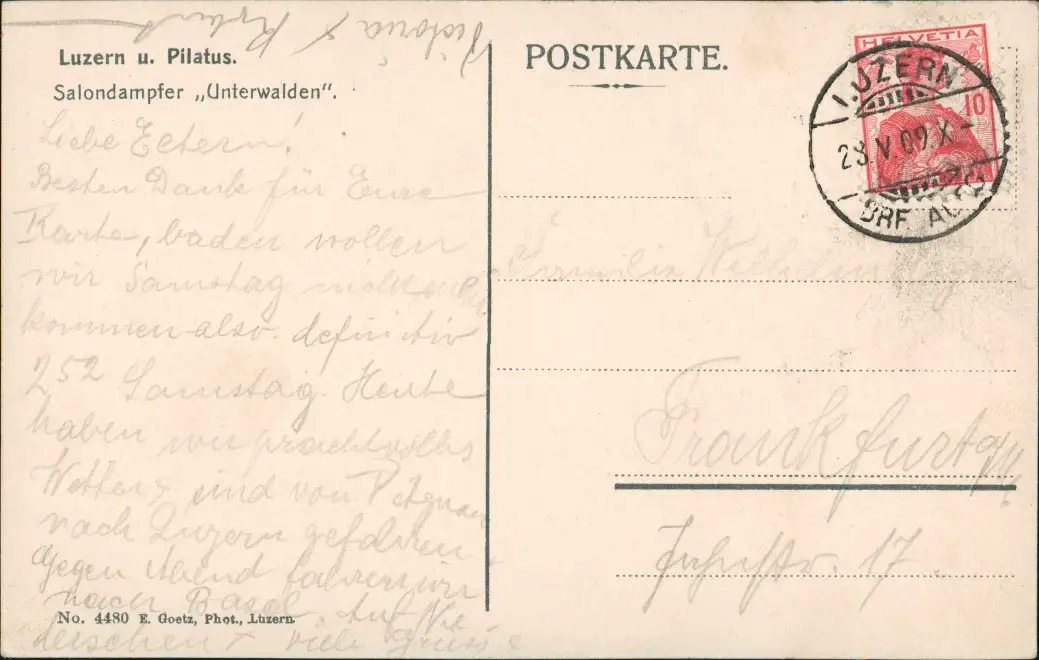 Victoria & Robert
Luzern u. Pilatus.
Salondampfer „Unterwalden“.
Liebe Eltern!
Besten Dank für Eure
Karte, baden wollen
wir Samstag
kommen also definitiv
2 52 Samstag. Heute
haben wir prachtvolles
Wetter & sind von
nach Luzern gefahren
Gegen Abend fahren wir
nach Basel. Auf Wie
dersehen & viele Grüsse
No. 4480 E. Goetz, Phot., Luzern.
POSTKARTE.
HELVETIA
10
LUZERN
28.V.09.X-
BRF. AUFG.
Familie Wilhelm
Frankfurt a/M
Jahnstr. 17.